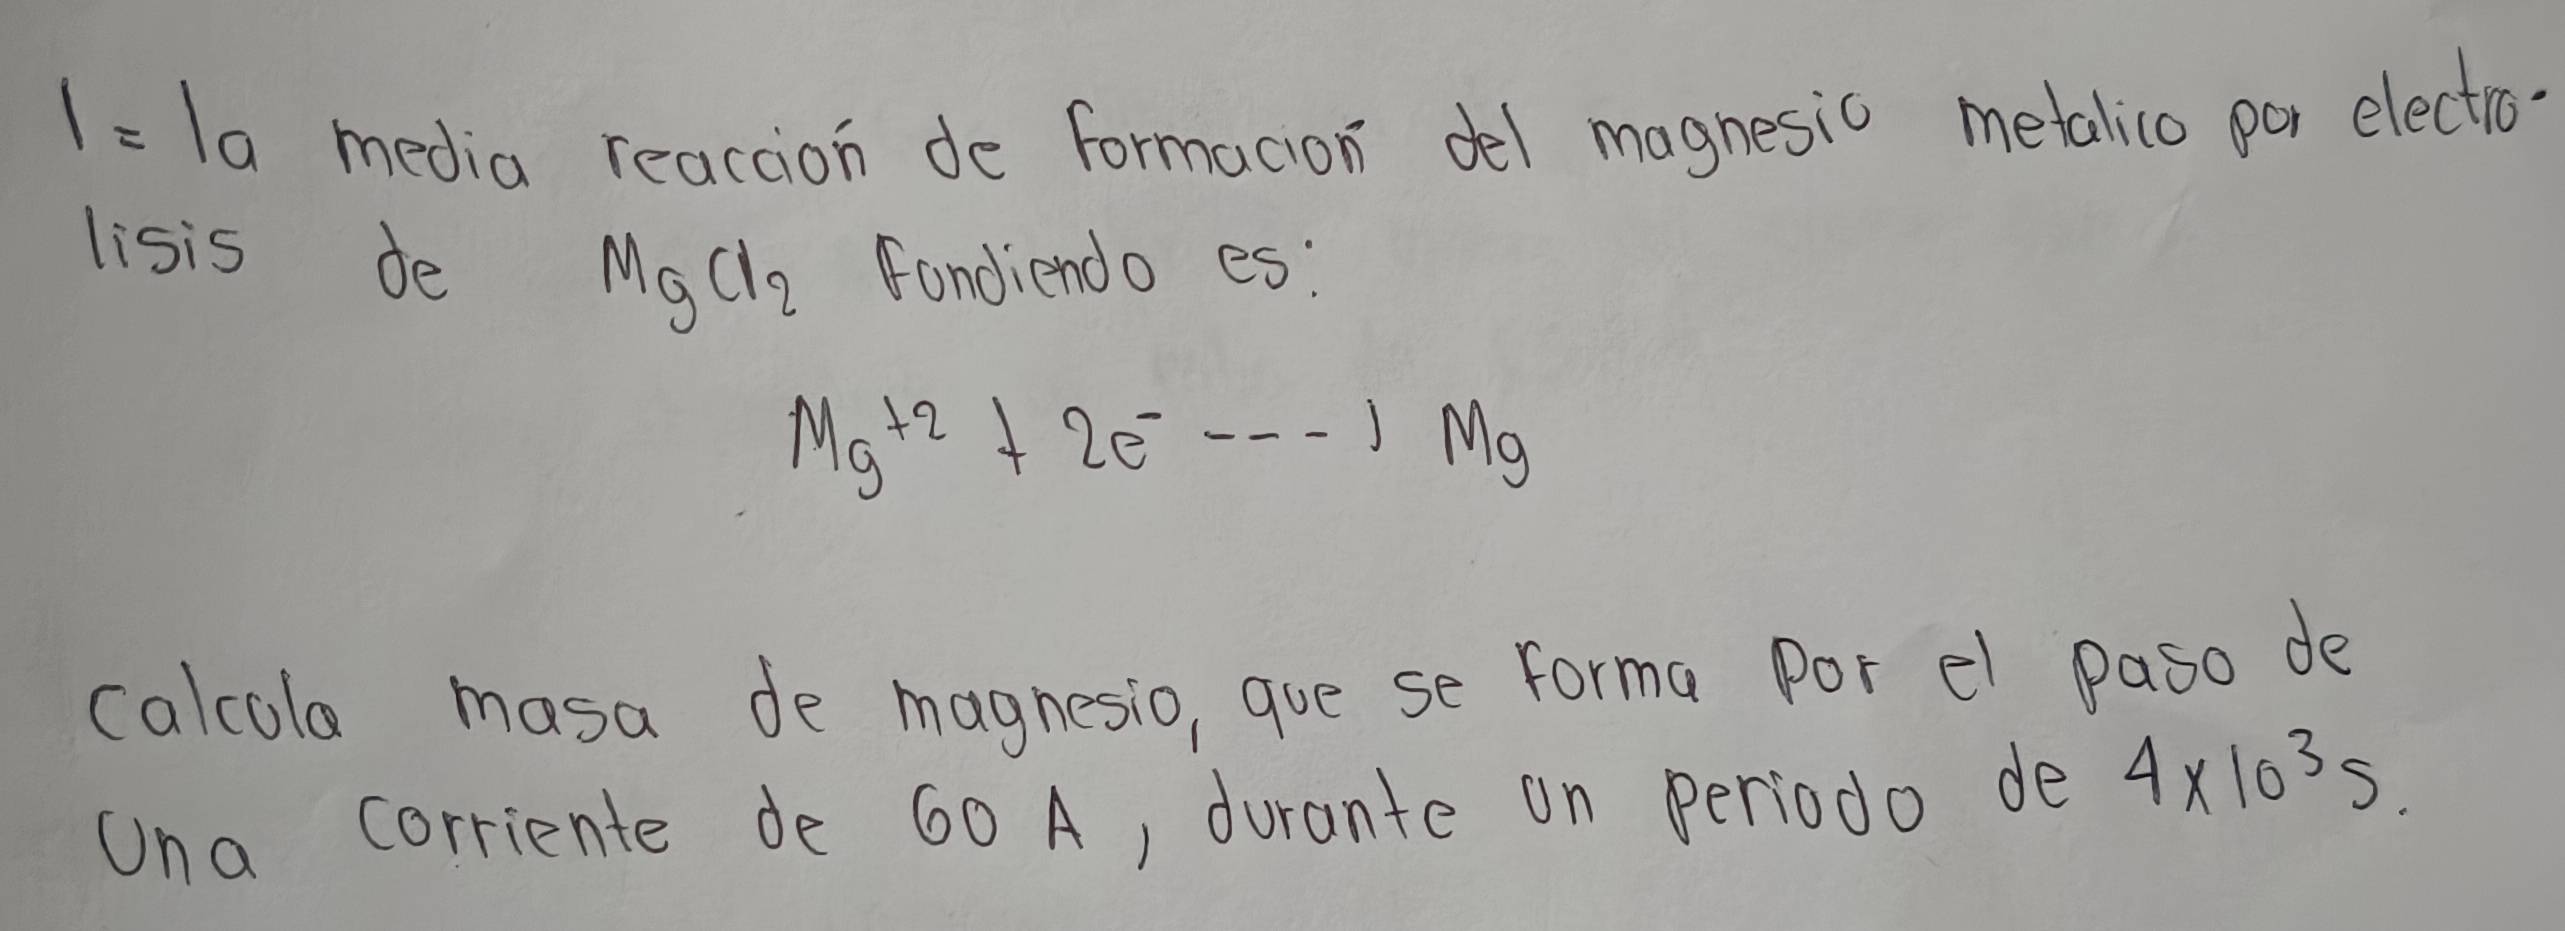 1= la media reacción de formación del magnesio metalico por electro-
lisis de MgCl₂ fundiendo es:
Mg⁺² + 2e⁻ ----> Mg
calcula masa de magnesio, que se forma por el paso de
una corriente de 60 A, durante un periodo de 4x10³s.